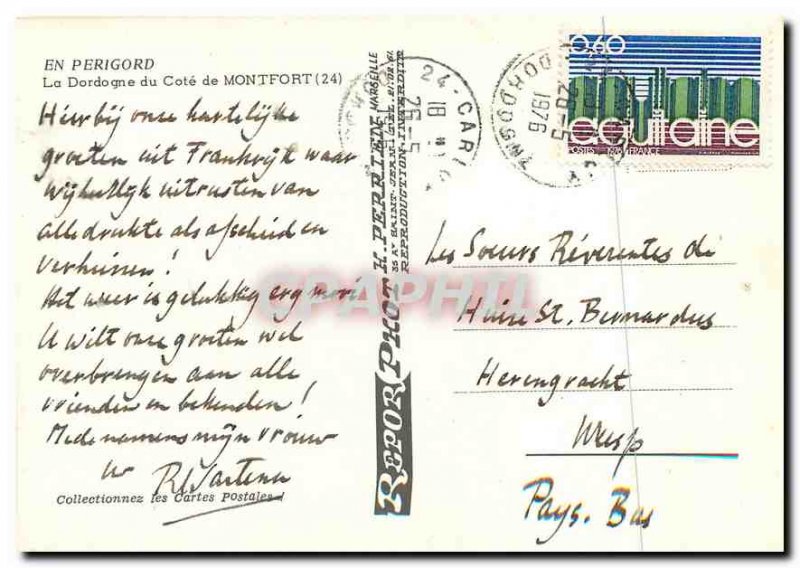 EN PERIGORD
La Dordogne du Coté de MONTFORT (24)
Hierbij onze hartelijke
groeten uit Frankrijk waar
wij heerlijk uitrusten van
alle drukte als afscheid en
verhuizen!
Het weer is gelukkig erg mooi.
U wilt onze groeten wel
overbrengen aan alle
vrienden en bekenden!
Mede namens mijn vrouw
uw
Collectionnez les Cartes Postales !
REPOR PHOT K. PERRIEN MARSEILLE
REPRODUCTION INTERDITE
24 - CARL
18 H
26-5
1976
0,60
aquitaine
POSTES 1976 FRANCE
Les Soeurs Réverentes di
Huize St. Bernardus
Herengracht
Weesp
Pays. Bas
CPAPHIL